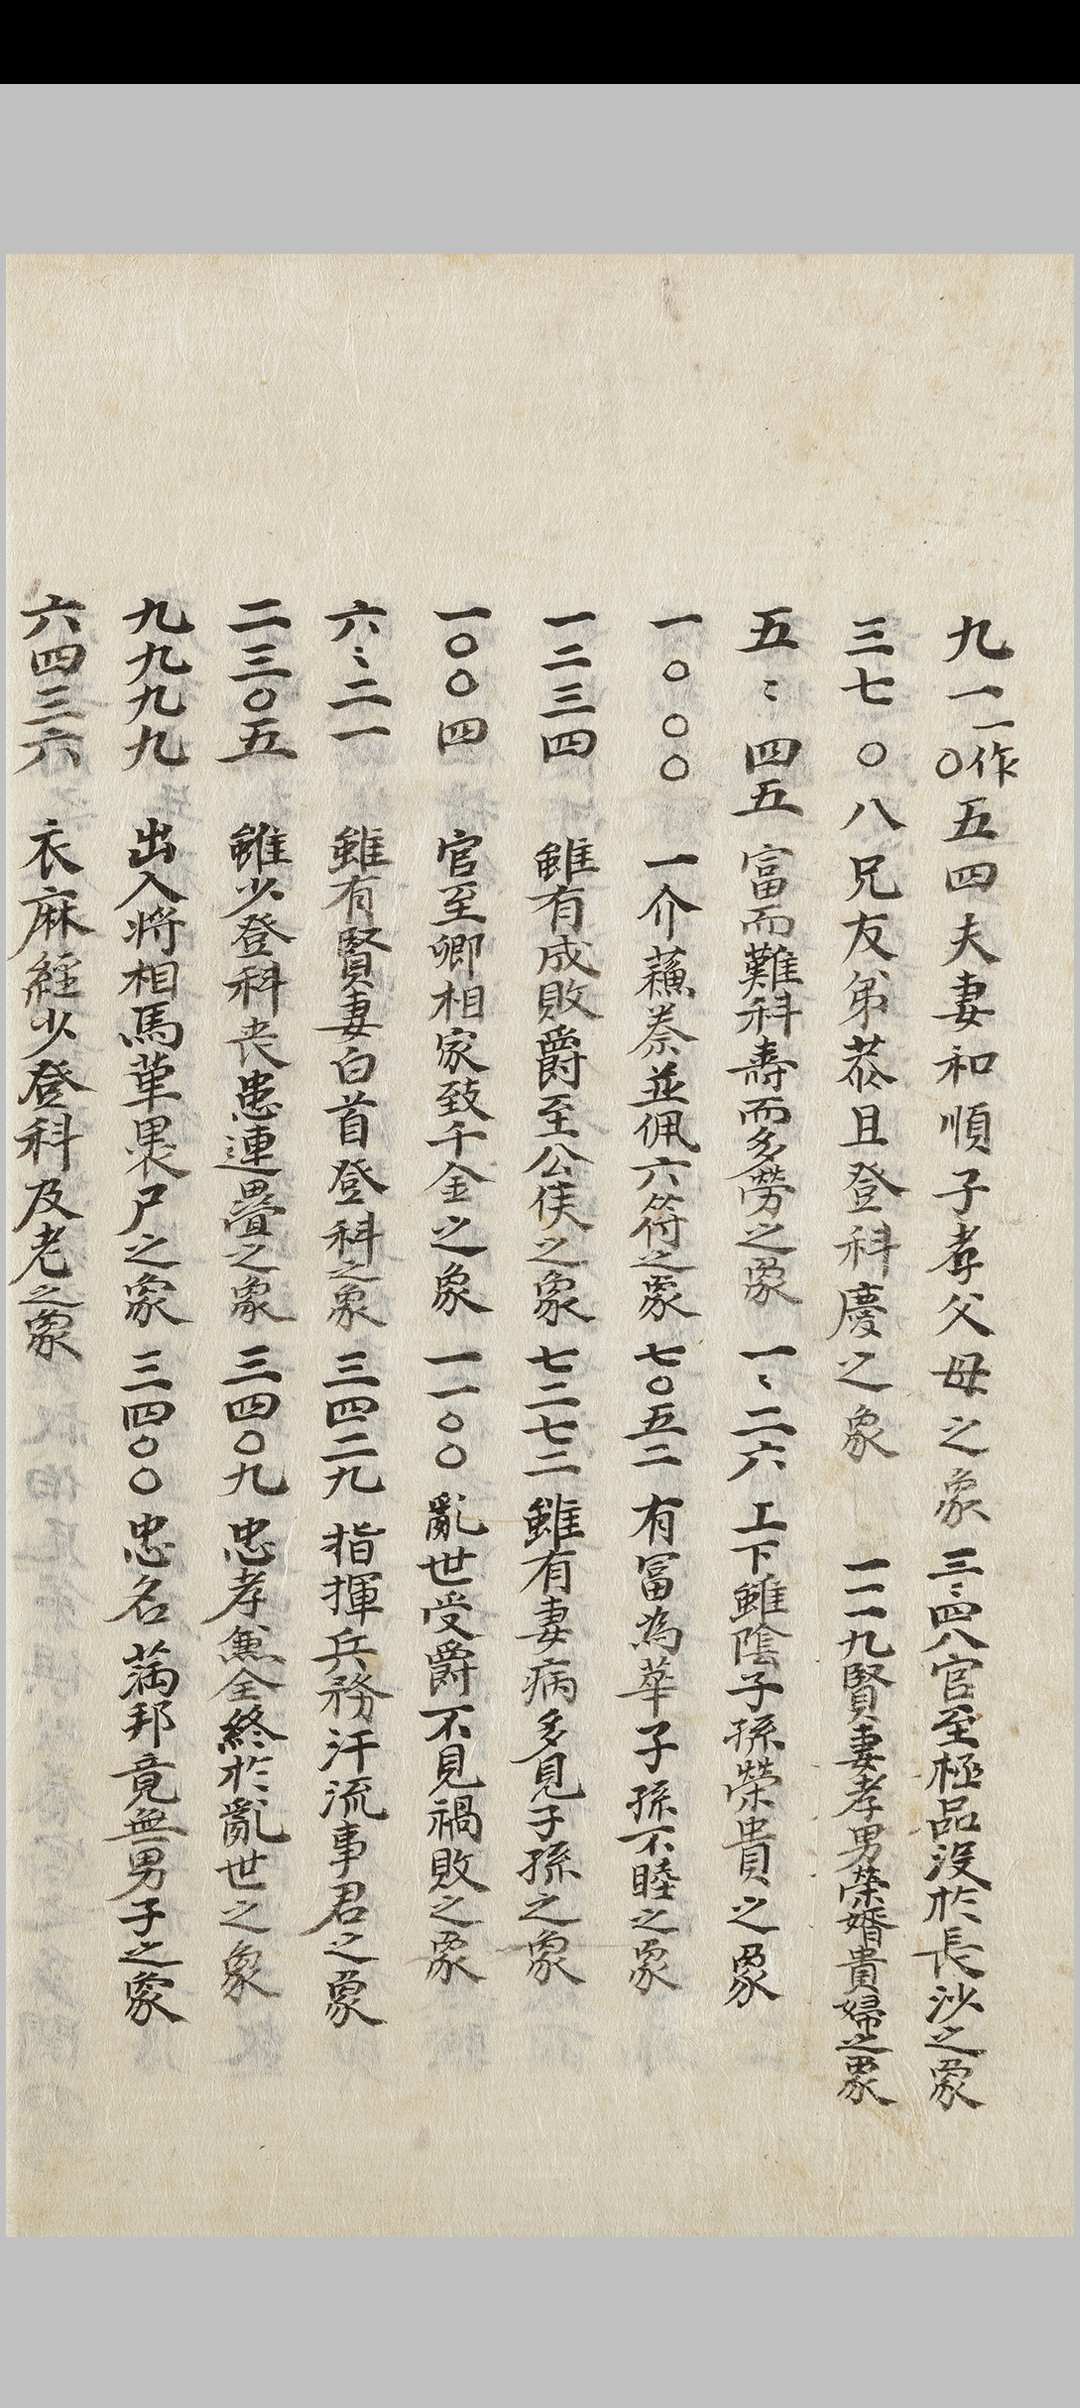 九一一作〇五四夫妻和順子孝父母之象 三〻四八官至極品沒於長沙之象
三七〇八兄友弟恭且登科慶之象 一一一九賢妻孝男榮婿貴婦之象
五〻四五富而難科壽而多勞之象 一〻二六 上下雖陰子孫榮貴之象
一〇〇〇 一介蘓秦並佩六符之象 七〇五二 有富為華子孫不睦之象
一二三四 雖有成敗爵至公侯之象 七二七二 雖有妻病多見子孫之象
一〇〇四 官至卿相家致千金之象 一一〇〇 亂世受爵不見禍敗之象
六〻二一 雖有賢妻白首登科之象 三四二九 指揮兵務汗流事君之象
二三〇五 雖少登科丧患連疊之象 三四〇九 忠孝兼全終於亂世之象
九九九九 出入将相馬革裹尸之象 三四〇〇 忠名滿邦竟無男子之象
六四三六 衣麻經少登科及老之象